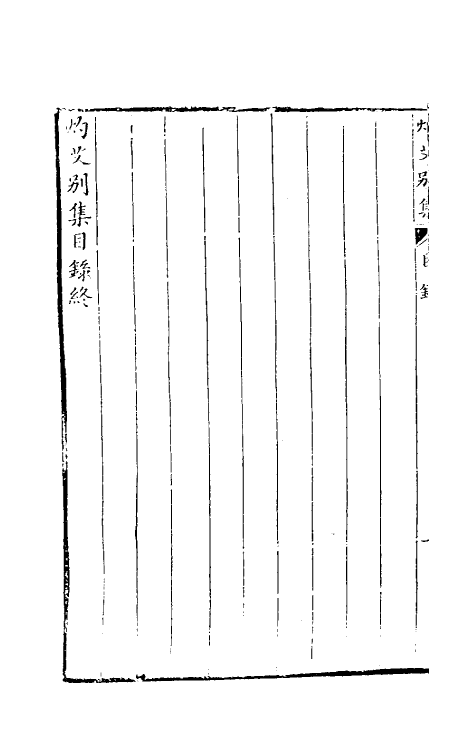 灼艾別集 目錄
灼艾別集目錄終